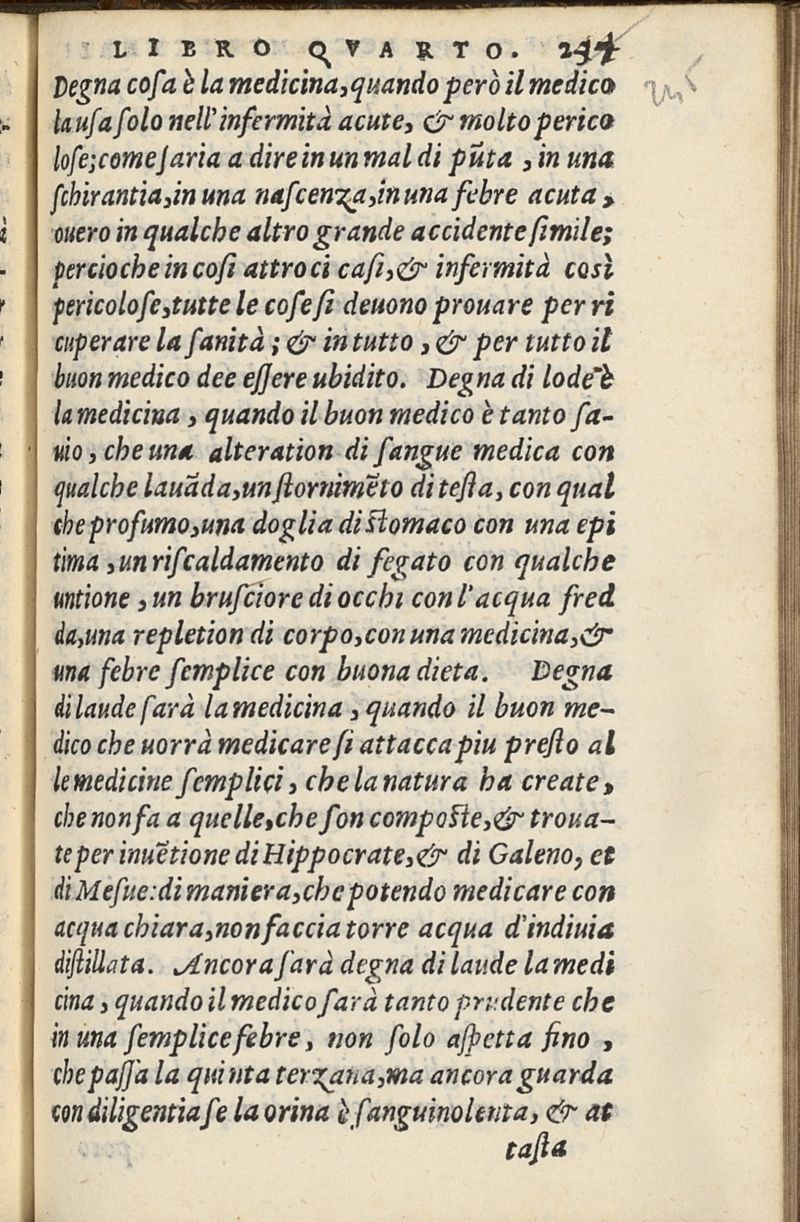 LIBRO QVARTO.
Degna coſa è la medicina, quando però il medico
la uſa ſolo nell' infermità acute, & molto perico
loſe; come ſaria a dire in un mal di pũta, in una
ſchirantia, in una naſcenza, in una febre acuta,
ouero in qualche altro grande accidente ſimile;
percioche in coſi attroci caſi, & infermità così
pericoloſe, tutte le coſe ſi deuono prouare per ri
cuperare la ſanità; & in tutto, & per tutto il
buon medico dee eſſere ubidito. Degna di lode è
la medicina, quando il buon medico è tanto ſa-
uio, che una alteration di ſangue medica con
qualche lauãda, un ſtornimẽto di teſta, con qual
che profumo, una doglia di ſtomaco con una epi
tima, un riſcaldamento di fegato con qualche
untione, un bruſciore di occhi con l'acqua fred
da, una repletion di corpo, con una medicina, &
una febre ſemplice con buona dieta. Degna
di laude ſarà la medicina, quando il buon me-
dico che uorrà medicare ſi attacca piu preſto al
le medicine ſemplici, che la natura ha create,
che non fa a quelle, che ſon compoſte, & troua-
te per inuẽtione di Hippocrate, & di Galeno, et
di Meſue: di maniera, che potendo medicare con
acqua chiara, non faccia torre acqua d'indiuia
diſtillata. Ancora ſarà degna di laude la medi
cina, quando il medico ſarà tanto prudente che
in una ſemplice febre, non ſolo aſpetta fino,
che paſſa la quinta terzana, ma ancora guarda
con diligentia ſe la orina è ſanguinolenta, & at
taſta